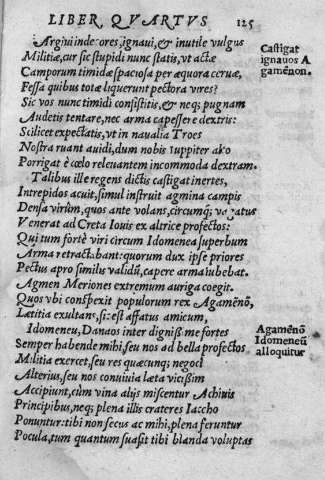 LIBER QVARTVS 125
Argiui indecores, ignaui, & inutile vulgus
Militiæ, cur sic stupidi nunc statis, vt actæ
Camporum timidæ spaciosa per æquora ceruæ,
Fessa quibus totæ liquerunt pectora vires?
Sic vos nunc timidi consistitis, & neq; pugnam
Audetis tentare, nec arma capessere dextris:
Scilicet expectatis, vt in naualia Troes
Nostra ruant auidi, dum nobis Iuppiter ako
Porrigat è cœlo releuantem incommoda dextram.
Talibus ille regens dictis castigat inertes,
Intrepidos acuit, simul instruit agmina campis
Densa virûm, quos ante volans, circumq; vagatus
Venerat ad Creta Iouis ex altrice profectos:
Qui tum fortè viri circum Idomenea superbum
Arma retractabant: quorum dux ipse priores
Pectus apro similis validû, capere arma iubebat.
Agmen Meriones extremum auriga coegit.
Quos vbi conspexit populorum rex Agamenõ,
Lætitia exultans, sic est affatus amicum,
Idomeneu, Danaos inter digniss. me fortes
Semper habende mihi, seu nos ad bella profectos
Militia exercet, seu res quæcunq; negoci
Alterius, seu nos conuiuia læta vicissim
Accipiunt, cùm vina alijs miscentur Achiuis
Principibus, neq; plena illis crateres Iaccho
Ponuntur: tibi non secus ac mihi, plena feruntur
Pocula, tum quantum suasit tibi blanda voluptas
Castigat
ignauos A
gamēnon.
Agamēnō
Idomeneū
alloquitur